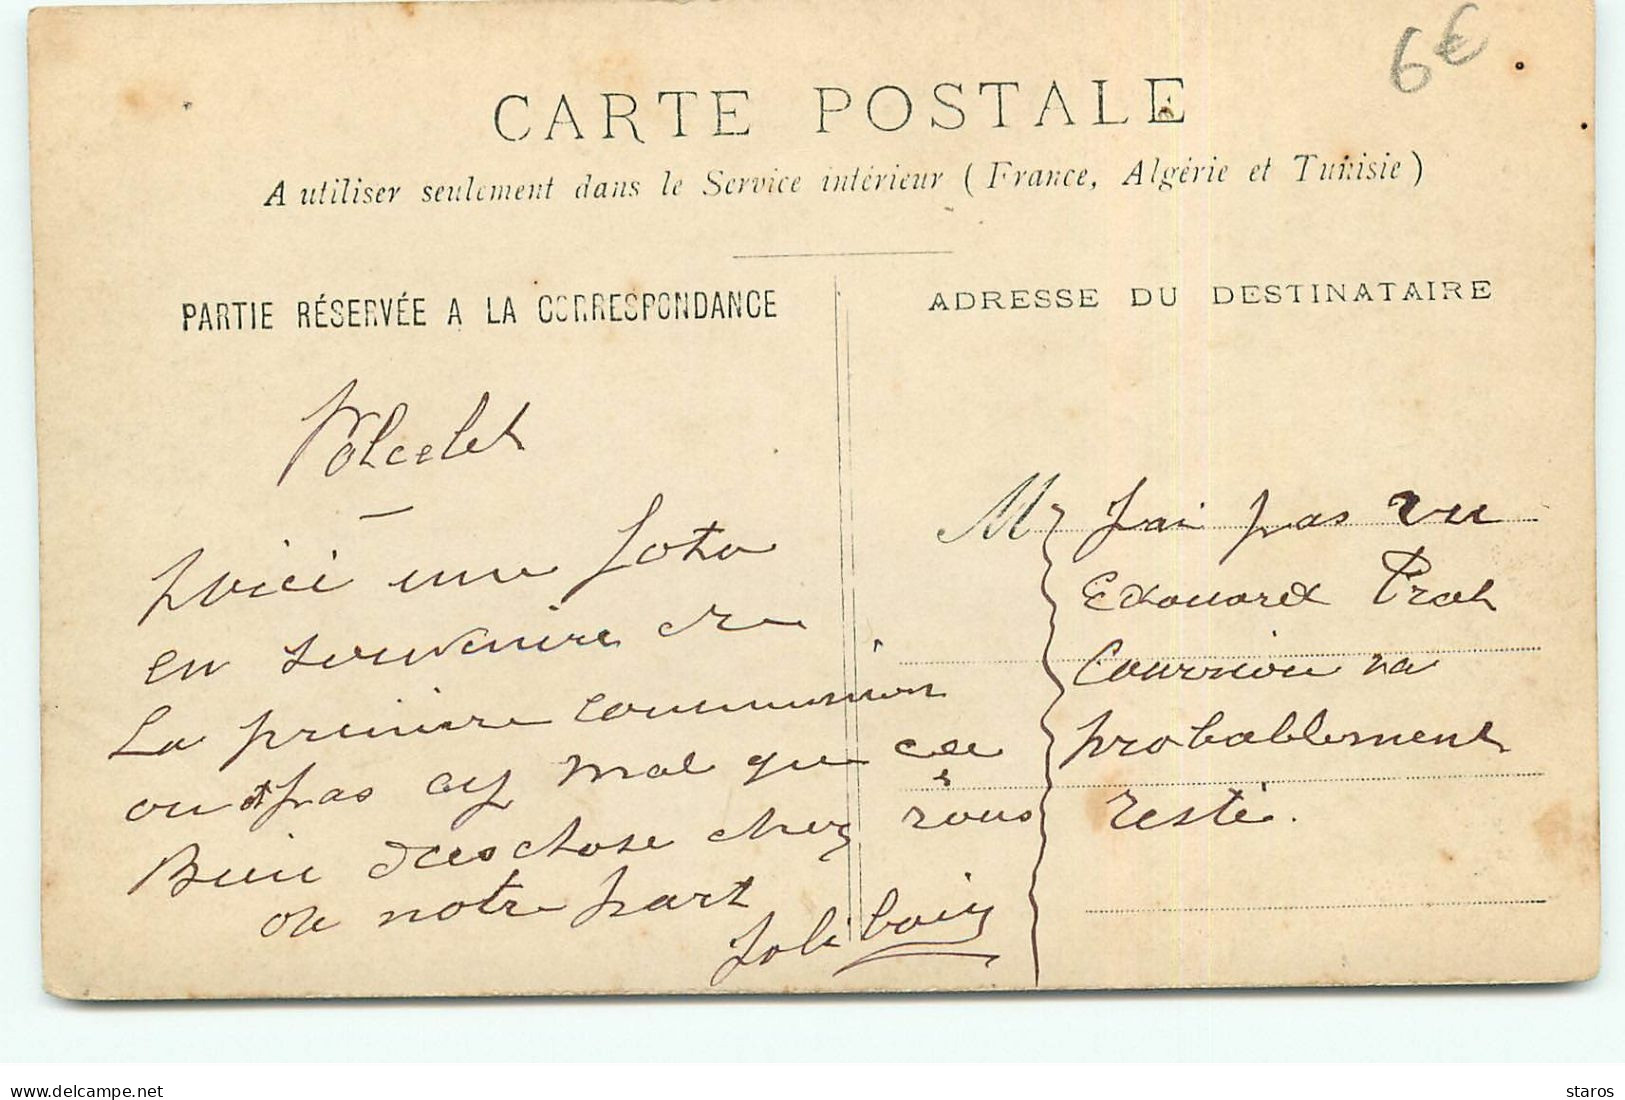 6€
CARTE POSTALE
A utiliser seulement dans le Service intérieur (France, Algérie et Tunisie)
PARTIE RÉSERVÉE A LA CORRESPONDANCE
ADRESSE DU DESTINATAIRE
Polcelet
voici une foto
en souvenire de
La premiere communion
pas mal que
Bien des chose chez vous
de notre part
Jolibois
M
J'ai pas vu
Edouard Prat
va
probablement
resté.
www.delcampe.net
staros